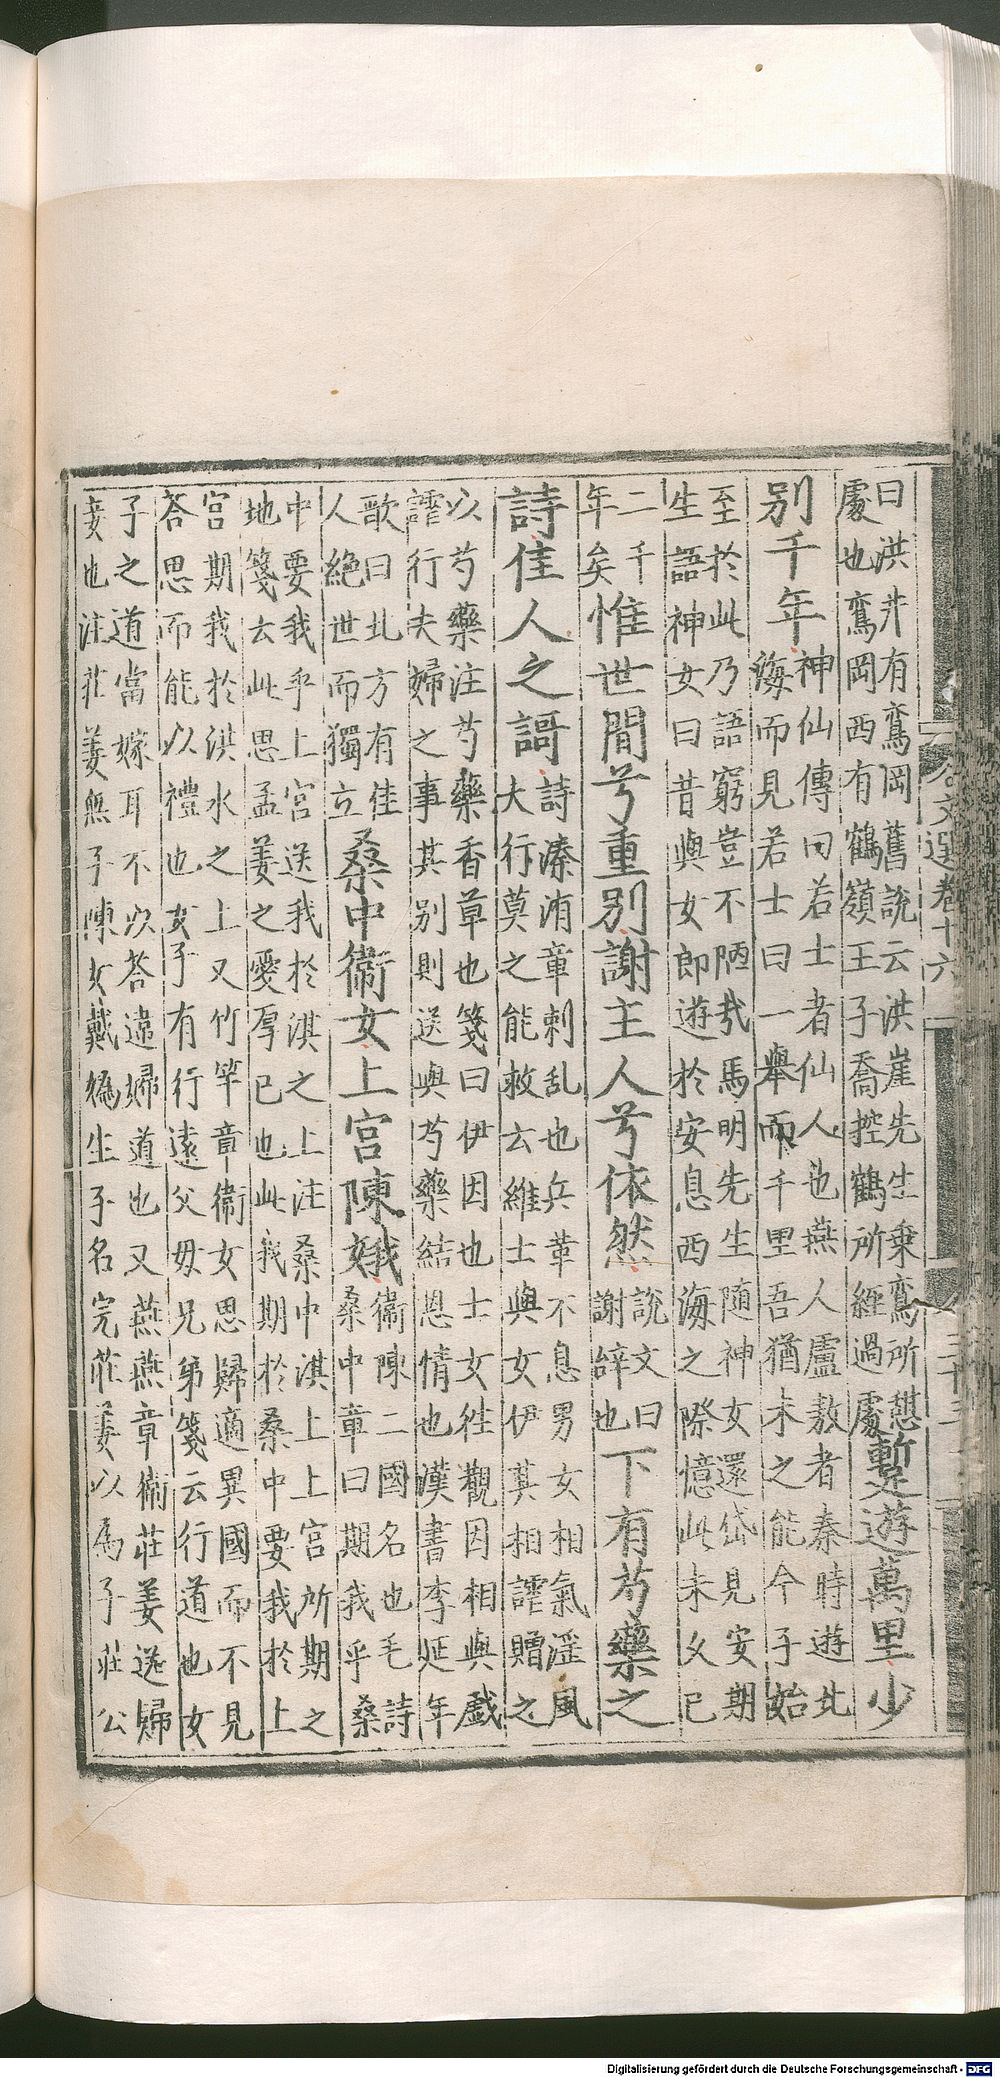 曰洪井有鸞岡舊說云洪崖先生乗鸞所憇
處也鸞岡西有鶴嶺王子喬控鶴所經過處
暫遊萬里少
别千年
神仙傳曰若士者仙人也燕人盧敖者秦時遊北
海而見若士曰一舉而千里吾猶未之能今子始
至於此乃語窮豈不陋㢤馬明先生随神女還岱見安期
生語神女曰昔與女郎遊於安息西海之際憶此未乆已
二千
年矣
惟世間兮重别謝主人兮依然
說文曰
謝辝也
下有芍藥之
詩佳人之謌
詩溱洧章刺乱也兵革不息男女相氣滛風
大行莫之能救云維士與女伊其相謔贈之
以芍藥注芍藥香草也箋曰伊因也士女徃觀因相與戱
謔行夫婦之事其别則送與芍藥結恩情也漢書李延年
歌曰北方有佳
人絶世而獨立
桑中衞女上宫陳娥
衞陳二國名也毛詩
桑中章曰期我乎桑
中要我乎上宫送我於淇之上注桑中淇上上宫所期之
地箋云此思孟姜之愛厚已也此我期於桑中要我於上
宫期我於淇水之上又竹竿章衞女思歸適異國而不見
荅思而能以禮也女子有行遠父母兄弟箋云行道也女
子之道當嫁耳不以荅違婦道也又燕燕章衞莊姜送歸
妾也注莊姜無子陳女戴媯生子名完莊姜以為子莊公
文選卷十六
三十三
Digitalisierung gefördert durch die Deutsche Forschungsgemeinschaft - DFG